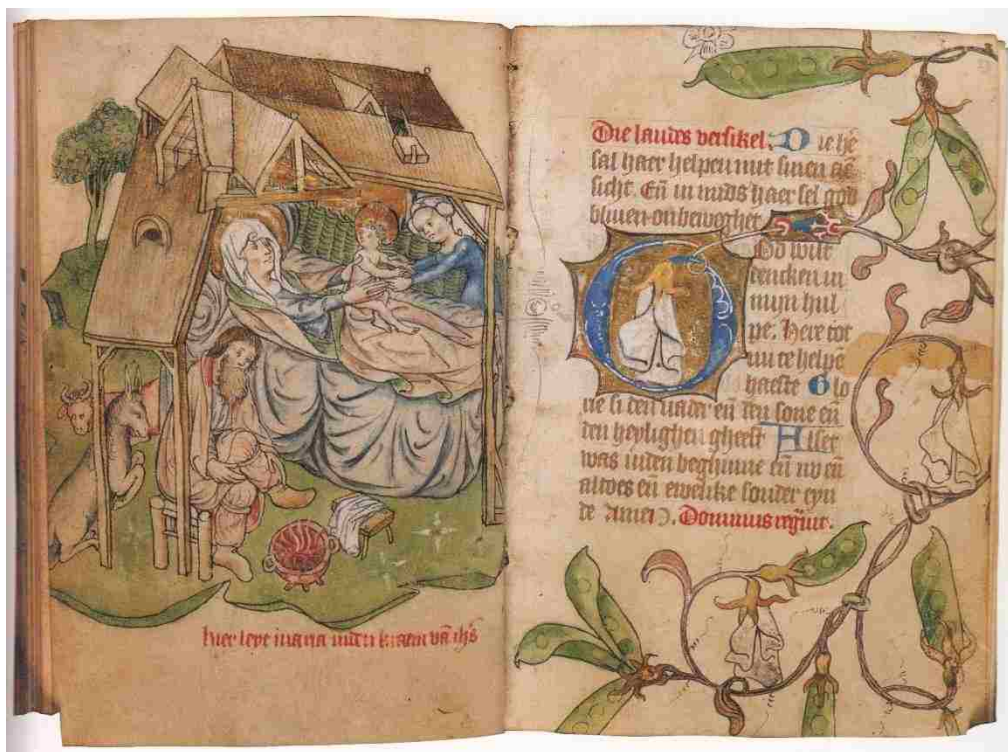 hier leyt maria inden kraem vā ihs̄
Die laudes versikel. Die hē
sal haer helpen mit sinen aē
sicht. En̄ in mids haer sel god
bliuen onbeweghet
God wilt
dencken in
mijn hul
pe. Here tot
mi te helpe
haeste Glo
rie si den uader en̄ den sone en̄
den heylighen gheest Alset
was inden beghinne en̄ nv en̄
altoes en̄ ewelike sonder eyn
de Amen. Dominus regnāt.